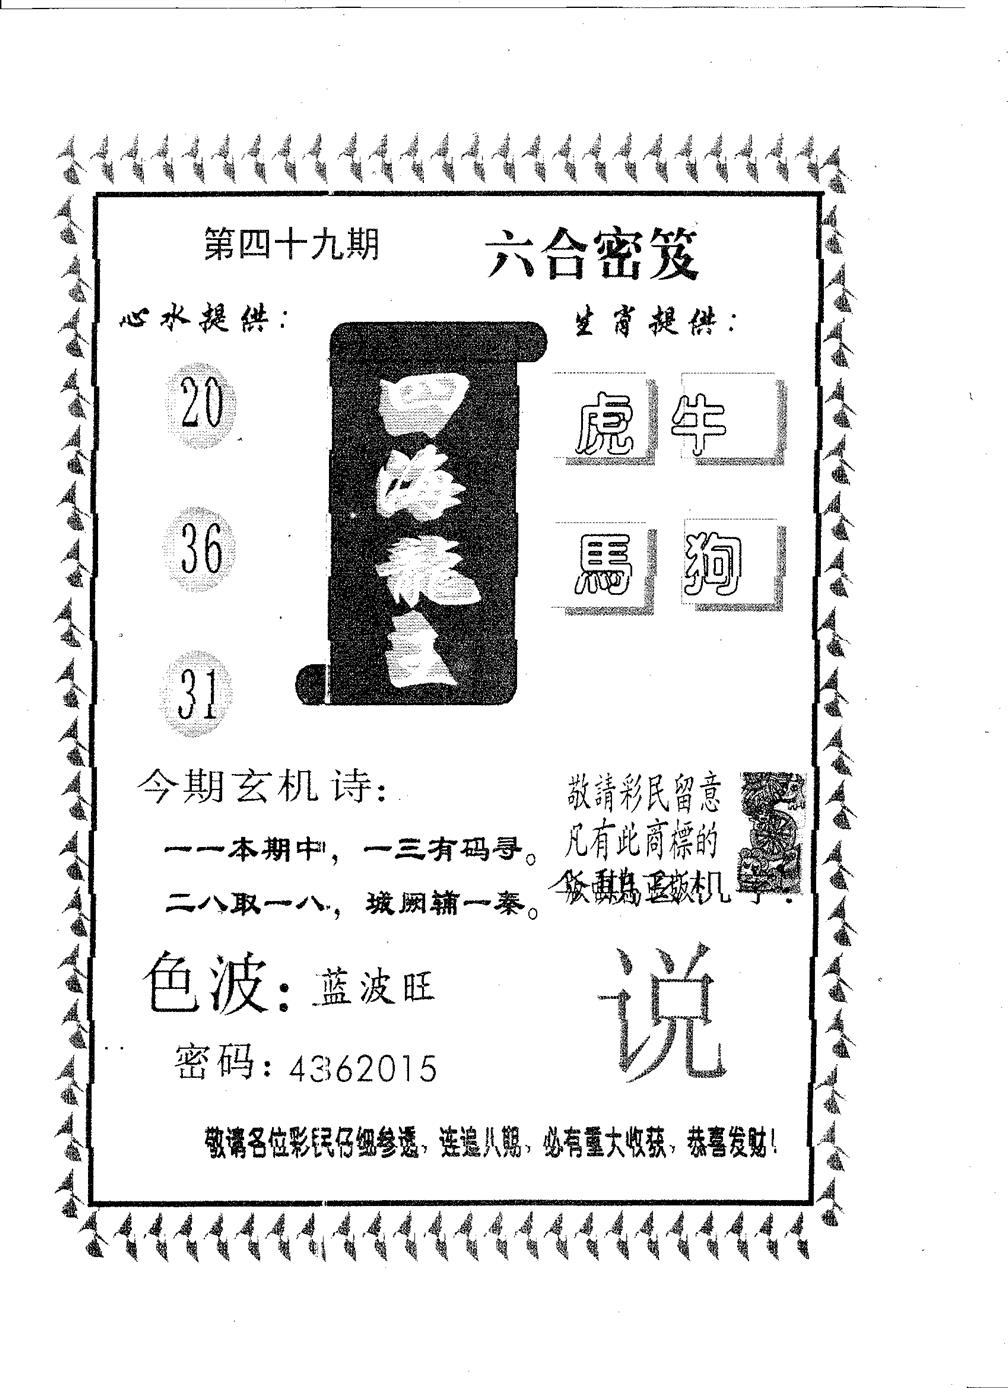 第四十九期
六合密笈
心水提供：
生肖提供：
20
36
31
四海龍王
虎 牛
馬 狗
今期玄机诗：
一一本期中，一三有码寻。
二八取一八，城阙辅一秦。
敬請彩民留意
凡有此商標的
色波：蓝波旺
密码：4362015
说
敬请各位彩民仔细参透，连追八期，必有重大收获，恭喜发财！